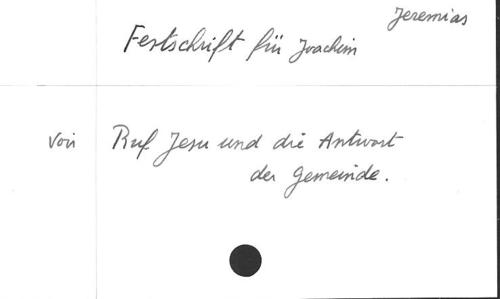 Jeremias
Festschrift für Joachim
Voir Ruf Jesu und die Antwort
der Gemeinde.